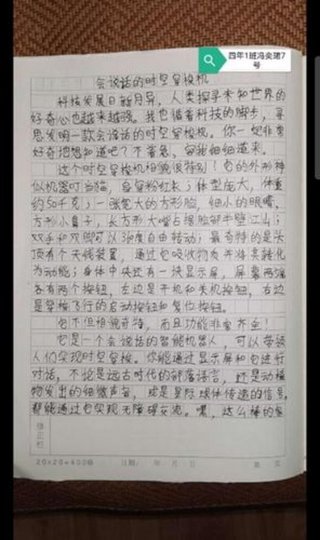 四年1班冯奕晴7号
会说话的时空穿梭机
科技发展日新月异，人类探寻未知世界的
好奇心也越来越强。我也循着科技的脚步，寻
思发明一款会说话的时空穿梭机。你一定非常
好奇把想知道吧？不着急，容我细细道来。
这个时空穿梭机相貌很特别！它的外形神
似机器叮当猫，身穿粉红长；体型庞大，体重
约50千克；一张宽大的方形脸，细小的眼睛，
方形小鼻子，长方形大嘴占据脸部半壁江山；
双手和双脚可以360度自由转动；最奇特的是头
顶有个天线装置，通过它吸收物质并将其转化
为动能；身体中央还有一块显示屏，屏幕两端
各有两个按钮，左边是开机和关机按钮，右边
是穿梭飞行的启动按钮和复位按钮。
它不但相貌奇特，而且功能非常齐全！
它是一个会说话的智能机器人，可以带领
人们实现时空穿梭。你能通过显示屏和它进行
对话，不论是远古时代的部落语言，还是动植
物发出的细微声音，或是星际球体传递的信号，
都能通过它实现无障碍交流。嘿，这么棒的
20×20=400格 日期： 年 月 日 第 页